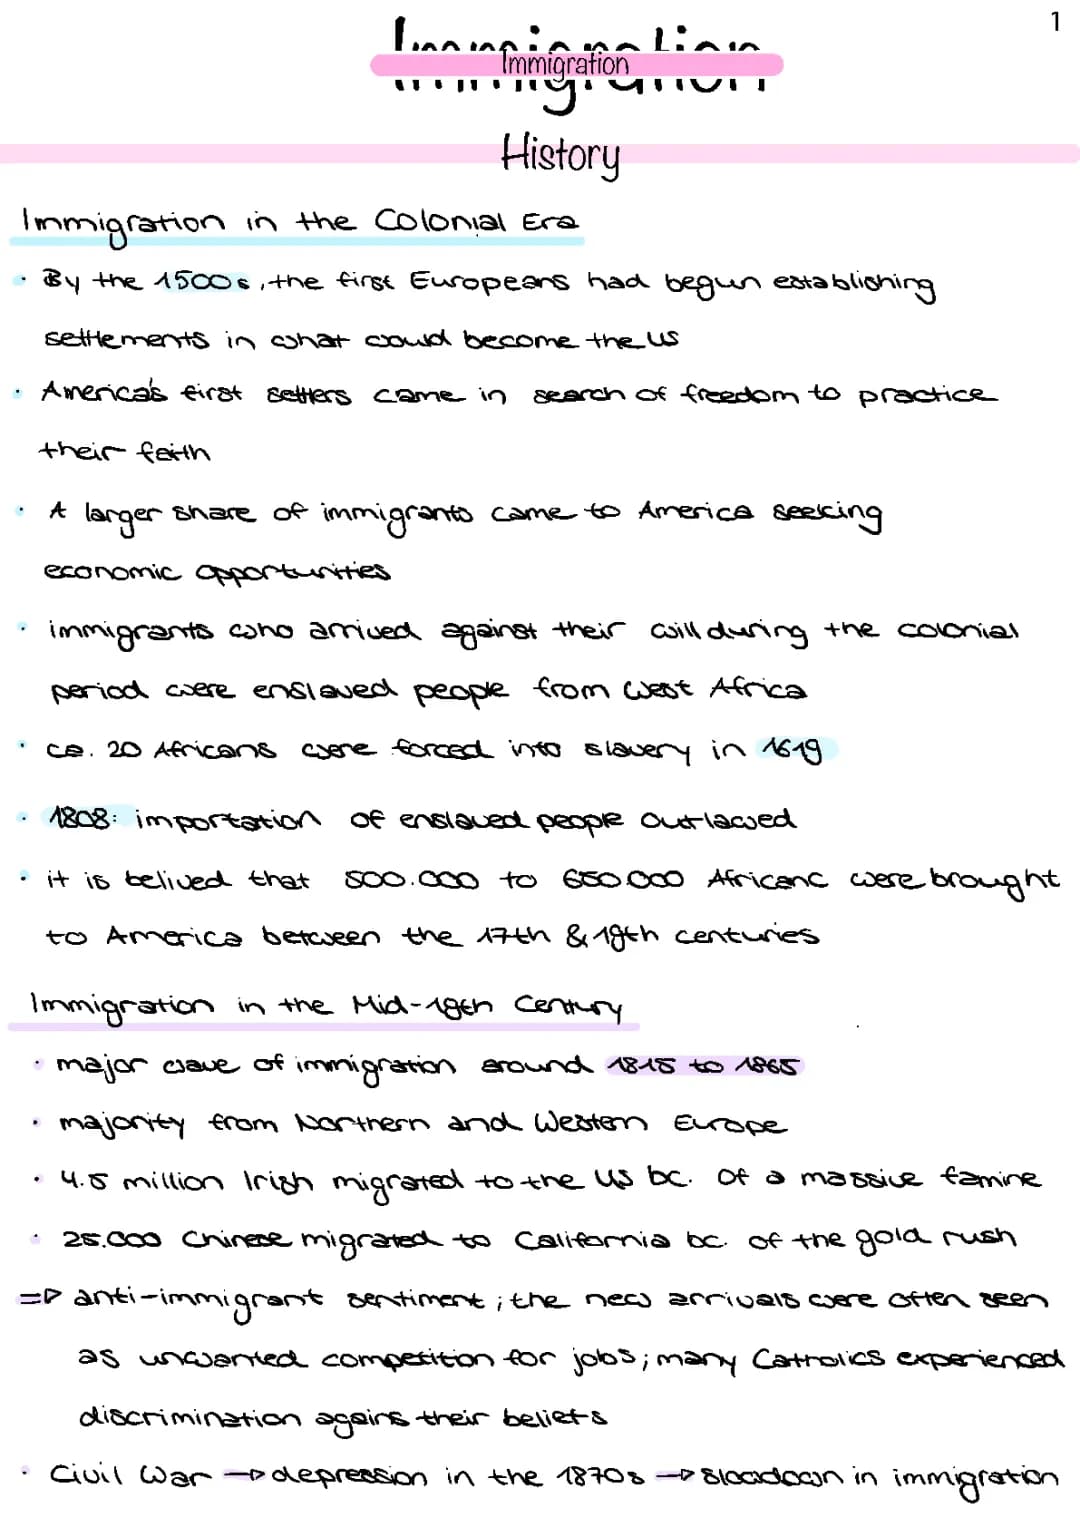 1
Immigration
Immigration
History
Immigration in the Colonial Era
· By the 1500s, the first Europeans had begun establishing
settlements in what could become the US
· America's first settlers came in search of freedom to practice
their faith
· A larger share of immigrants came to America seeking
economic opportunities
· immigrants who arrived against their will during the colonial
period were enslaved people from West Africa
· ca. 20 Africans were forced into slavery in 1619
· 1808: importation of enslaved people outlawed
· it is belived that 500.000 to 650.000 Africans were brought
to America between the 17th & 19th centuries
Immigration in the Mid-19th Century
· major wave of immigration around 1815 to 1865
· majority from Northern and Western Europe
· 4.5 million Irish migrated to the US bc. of a massive famine
· 25.000 Chinese migrated to California bc. of the gold rush
=> anti-immigrant sentiment; the new arrivals were often seen
as unwanted competition for jobs; many Catholics experienced
discrimination agains their beliefs
· Civil War → depression in the 1870s → slowdown in immigration